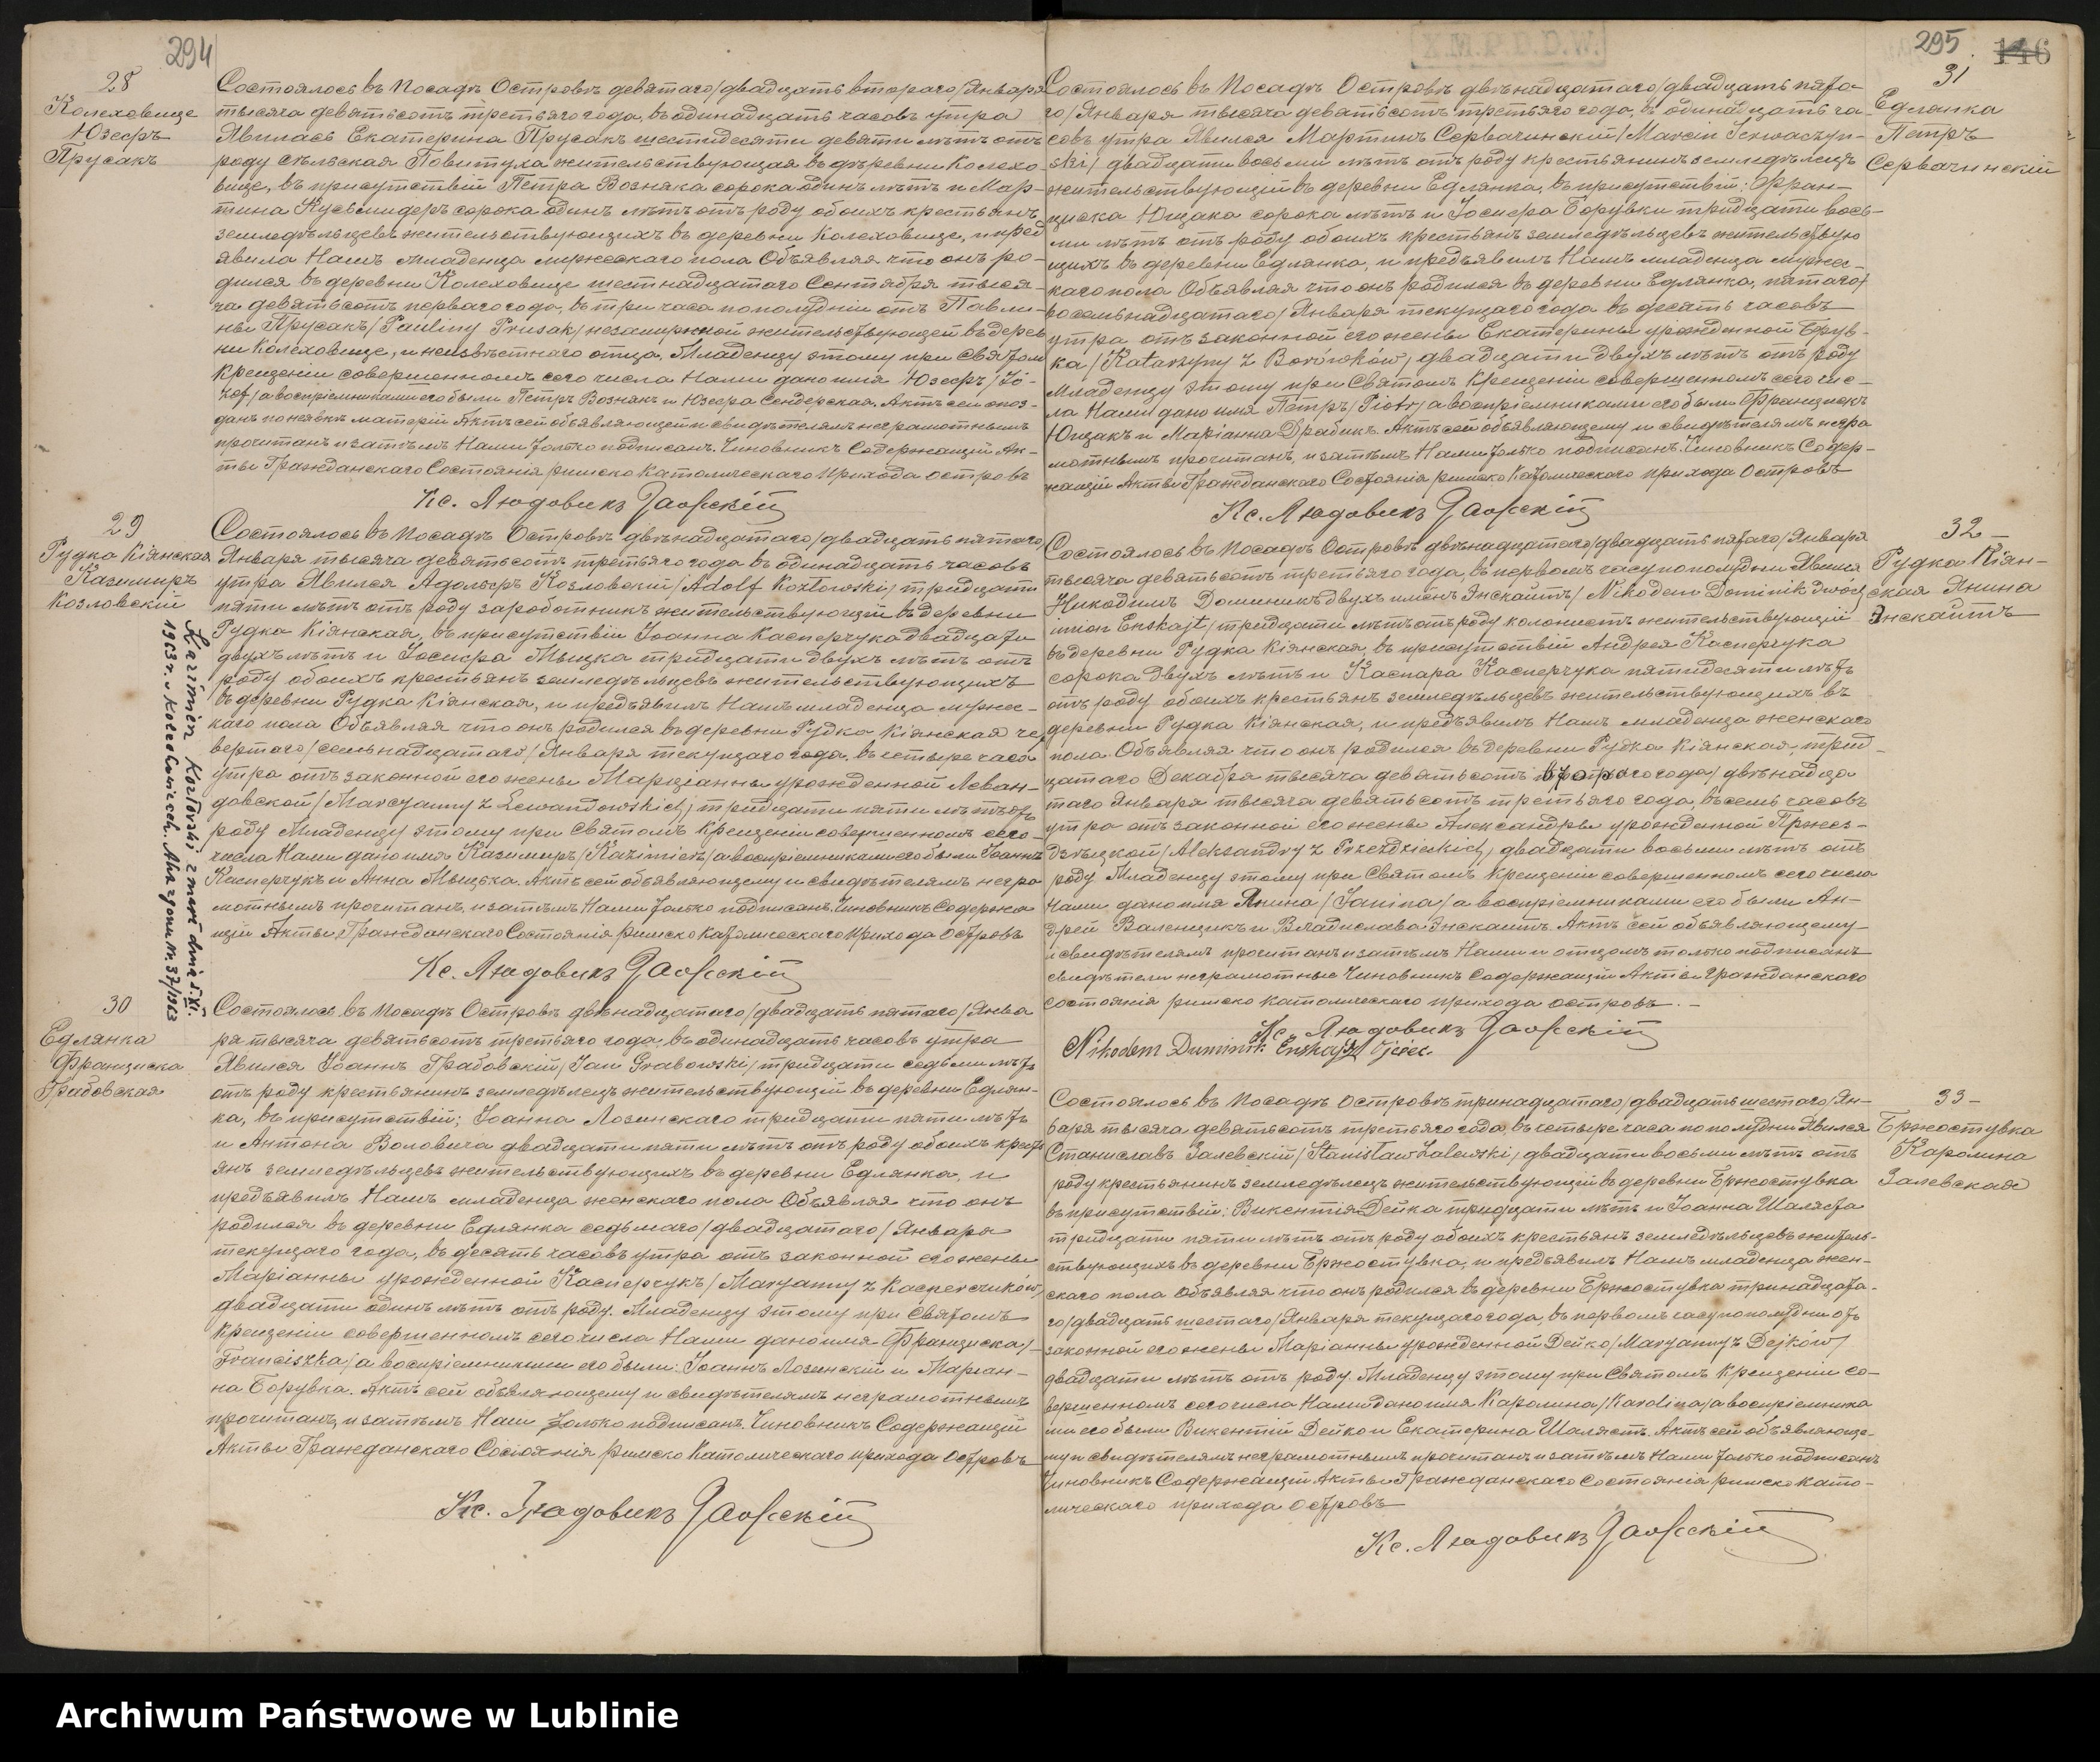 294
28
Колеховице
Юзефъ
Прусакъ
Состоялось въ Посадѣ Островѣ девятаго/двадцать втораго/Января
тысяча девятьсотъ третьяго года, въ одинадцать часовъ утра
Явилась Екатерина Прусакъ шестидесяти девяти лѣтъ отъ
роду сѣльская Повитуха жительствующая въ дѣревни Колехо-
вице, въ присутствіи Петра Возняка сорока одинъ лѣтъ и Мар-
тина Кусьмидеръ сорока одинъ лѣтъ отъ роду обоихъ крестьянъ
земледѣльцевъ жительствующихъ въ деревни Колеховице, и пред
явила Намъ младенца мужескаго пола Объявляя что онъ ро-
дился въ деревни Колеховице шестнадцатаго Сентября тыся-
ча девятьсотъ перваго года, въ три часа пополудніи отъ Павли-
ны Прусакъ/Pauliny Prusak/незамужной жительствующей въ дерев
ни Колеховице, и неизвѣстнаго отца. Младенцу этому при Святом
крещеніи совершенномъ сего числа Нами дано имя Юзефъ/Jó-
zef/а воспріемниками его были Петръ Вознякъ и Юзефа Сендерская. Актъ сей опоз-
данъ по неявкѣ матерій Актъ сей объявляющей и свидѣтелямъ неграмотнымъ
прочитанъ и затѣмъ Нами только подписанъ. Чиновникъ Содержащій Ак-
ты Гражданскаго Состоянія римско Католическаго Прихода Островъ
Кс. Людовикъ
29
Рудка Кіянская
Казимиръ
Козловскій
Состоялось въ Посадѣ Островѣ двѣнадцатаго/двадцать пятаго/
Января тысяча девятьсотъ третьяго года въ одинадцать часовъ
утра Явился Адольфъ Козловскій/Adolf Kozłowski/тридцати
пяти лѣтъ отъ роду заработникъ жительствующій въ деревни
Рудка Кіянская, въ присутствіи Іоанна Касперчука двадцати
двухъ лѣтъ и Іосифа Мыцка тридцати двухъ лѣтъ отъ
роду обоихъ крестьянъ земледѣльцевъ жительствующихъ
въ деревни Рудка Кіянская, и предъявилъ Намъ младенца мужес-
каго пола Объявляя что онъ родился въ деревни Рудка Кіянская чет
вертаго/семьнадцатаго/Января текущаго года, въ четыре часа
утра отъ законной его жены Марціанны урожденной Леван-
довской/Marcyanny z Lewandowskich/тридцати пяти лѣтъ отъ
роду Младенцу этому при Святомъ крещеніи совершенномъ сего
числа Нами дано имя Казимиръ/Kazimierz/а воспріемниками его были Іоаннъ
Касперчукъ и Анна Мыцка. Актъ сей объявляющему и свидѣтелямъ негра
мотнымъ прочитанъ, и затѣмъ Нами только подписанъ. Чиновникъ Содержа
щій Акты Гражданскаго Состоянія римско Католическаго Прихода Островъ
Кс. Людовикъ
Kazimierz Kozłowski zmarł dnia 5.XI.
1963 r. Kolechowicach. Akt zgonu Nr. 37/1963
30
Едлянка
Франциска
Грабовская
Состоялось въ Посадѣ Островѣ двѣнадцатаго/двадцать пятаго/Янва
ря тысяча девятьсотъ третьяго года, въ одинадцать часовъ утра
Явился Іоаннъ Грабовскій/Jan Grabowski/тридцати седьми лѣтъ
отъ роду крестьянинъ земледѣлецъ жительствующій въ деревни Едлян-
ка, въ присутствіи; Іоанна Лозинскаго тридцати пяти лѣтъ
и Антона Воловича двадцати пяти лѣтъ отъ роду обоихъ кресть
янъ земледѣльцевъ жительствующихъ въ деревни Едлянка, и
предъявилъ Намъ младенца женскаго пола Объявляя что онъ
родился въ деревни Едлянка седьмаго/двадцатаго/Января
текущаго года, въ десять часовъ утра отъ законной его жены
Маріанны урожденной Касперчукъ/Maryanny z Kasperczuków/
двадцати одинъ лѣтъ отъ роду. Младенцу этому при Святомъ
крещеніи совершенномъ сего числа Нами дано имя Франциска/
Franciszka/а воспріемниками его были: Іоаннъ Лозинскій и Маріан-
на Борувка. Актъ сей объявляющему и свидѣтелямъ неграмотнымъ
прочитанъ, и затѣмъ Нами только подписанъ. Чиновникъ Содержащій
Акты Гражданскаго Состоянія римско Католическаго прихода Островъ
Кс. Людовикъ
295
146
31
Едлянка
Петръ
Сервачинскій
Состоялось въ Посадѣ Островѣ двѣнадцатаго/двадцать пята
го/Января тысяча девятьсотъ третьяго года, въ одинадцать ча
совъ утра Явился Мартинъ Сервачинскій/Marcin Serwaczyń-
ski/двадцати восьми лѣтъ отъ роду крестьянинъ земледѣлецъ
жительствующій въ деревни Едлянка, въ присутствіи; Фран-
циска Ющака сорока лѣтъ и Іосифа Борувки тридцати вось-
ми лѣтъ отъ роду обоихъ крестьянъ земледѣльцевъ жительствую
щихъ въ деревни Едлянка, и предъявилъ Намъ младенца мужес-
каго пола Объявляя что онъ родился въ деревни Едлянка, пятаго/
восемьнадцатаго/Января текущаго года въ десять часовъ
утра отъ законной его жены Екатерины урожденной Борув-
ка/Katarzyny z Borówków/двадцати двухъ лѣтъ отъ роду
Младенцу этому при Святомъ крещеніи совершенномъ сего чис-
ла Нами дано имя Петръ/Piotr/а воспріемниками его были Францискъ
Ющакъ и Маріанна Драбикъ. Актъ сей объявляющему и свидѣтелямъ негра
мотнымъ прочитанъ, и затѣмъ Нами только подписанъ. Чиновникъ Содер-
жащій Акты Гражданскаго Состоянія римско Католическаго прихода Островъ
Кс. Людовикъ
32
Рудка Кіян-
ская Янина
Энскайтъ
Состоялось въ Посадѣ Островѣ двѣнадцатаго/двадцать пятаго/Января
тысяча девятьсотъ третьяго года, въ первомъ часу пополудни Явился
Никодимъ Доминикъ двухъ именъ Энскайтъ/Nikodem Dominik dwóch
imion Enskajt/тридцати лѣтъ отъ роду колонистъ жительствующій
въ деревни Рудка Кіянская, въ присутствіи Андрея Касперчука
сорока двухъ лѣтъ и Каспара Касперчука пятидесяти лѣтъ
отъ роду обоихъ крестьянъ земледѣльцевъ жительствующихъ въ
деревни Рудка Кіянская, и предъявилъ Намъ младенца женскаго
пола. Объявляя что онъ родился въ деревни Рудка Кіянская, трид-
цатаго Декабря тысяча девятьсотъ втораго года/двѣнадца
таго Января тысяча девятьсотъ третьяго года, въ семь часовъ
утра отъ законной его жены Александры урожденной Пржез-
дзѣцкой/Aleksandry z Przezdzieckich/двадцати восьми лѣтъ отъ
роду Младенцу этому при Святомъ крещеніи совершенномъ сего числа
Нами, дано имя Янина/Janina/а воспріемниками его были Ан-
дрей Валенцикъ и Владислава Энскайтъ. Актъ сей объявляющему
и свидѣтелямъ прочитанъ и затѣмъ Нами и отцомъ только подписанъ
свидѣтели неграмотные Чиновникъ Содержащій Акты гражданскаго
состоянія римско католическаго прихода Островъ. -
Кс. Людовикъ
Nikodem Duminik Enskajt Ojciec.
33
Бржостувка
Каролина
Залевская
Состоялось въ Посадѣ Островѣ тринадцатаго/двадцать шестаго/Ян-
варя тысяча девятьсотъ третьяго года, въ четыре часа пополудни Явился
Станиславъ Залевскій/Stanisław Zalewski/двадцати восьми лѣтъ отъ
роду крестьянинъ земледѣлецъ жительствующій въ деревни Бржостувка
въ присутствіи: Викентія Дейка тридцати лѣтъ и Іоанна Шаляста
тридцати пяти лѣтъ отъ роду обоихъ крестьянъ земледѣльцевъ житель-
ствующихъ въ деревни Бржостувка, и предъявилъ Намъ младенца жен-
скаго пола Объявляя что онъ родился въ деревни Бржостувка тринадцата-
го/двадцать шестаго/Января текущаго года, въ первомъ часу пополудни отъ
законной его жены Маріанны урожденной Дейко/Maryanny z Dejków/
двадцати лѣтъ отъ роду. Младенцу этому при Святомъ крещеніи со-
вершенномъ сего числа Нами дано имя Каролина/Karolina/а воспріемника
ми его были Викентій Дейко и Екатерина Шалястъ. Актъ сей объявляюще-
му и свидѣтелямъ неграмотнымъ прочитанъ и затѣмъ Нами только подписанъ
Чиновникъ Содержащій Акты Гражданскаго Состоянія римско като-
лическаго прихода Островъ
Кс. Людовикъ
Archiwum Państwowe w Lublinie